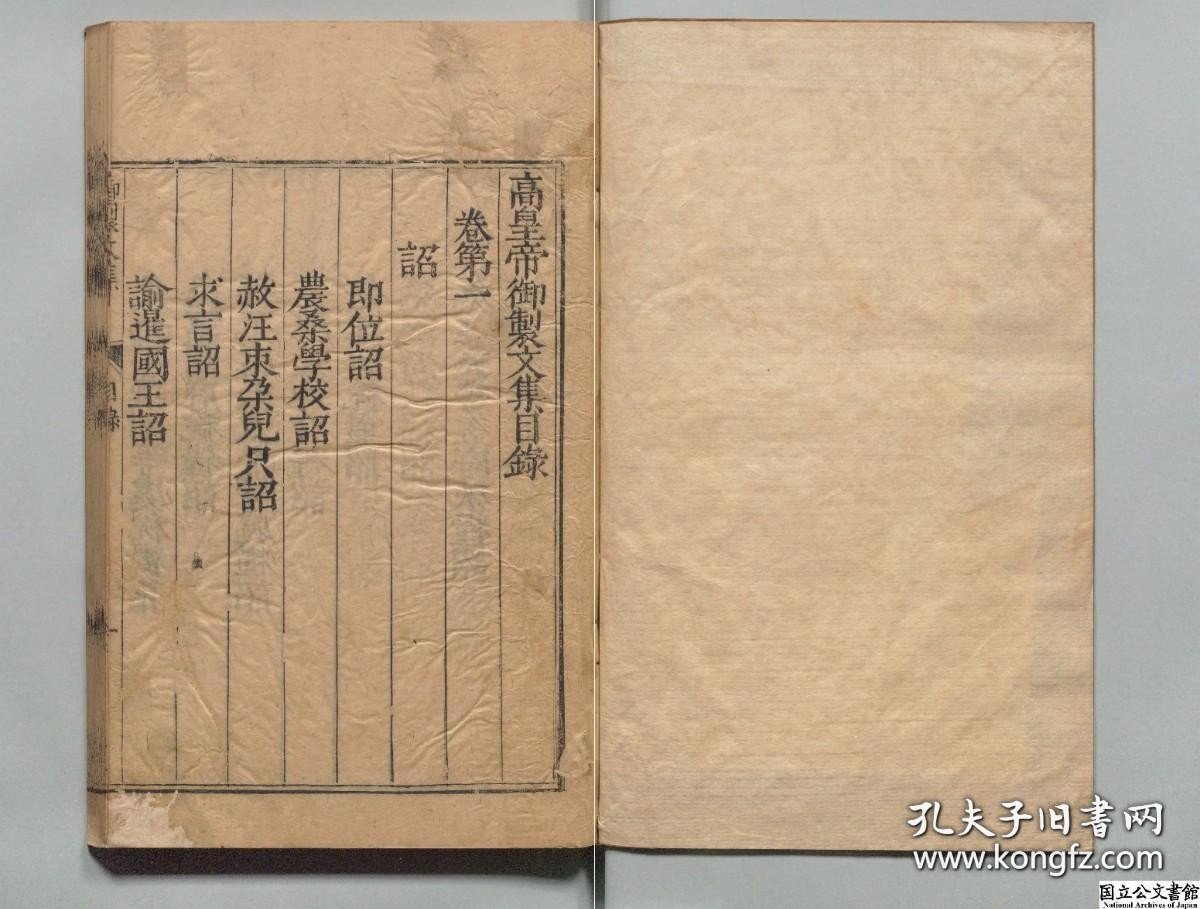 高皇帝御製文集目錄
卷第一
詔
即位詔
農桑學校詔
赦汪束朶兒只詔
求言詔
諭暹國王詔
孔夫子旧书网
www.kongfz.com
国立公文書館
National Archives of Japan